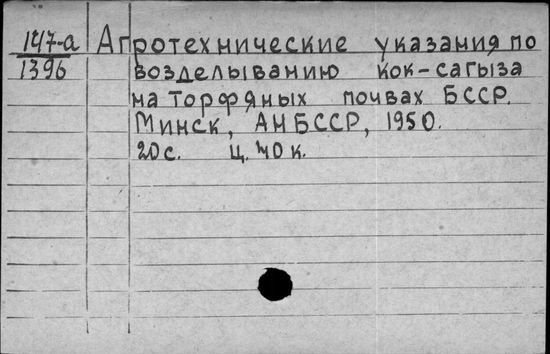 147-а Агротехнические указания по
1396 возделыванию кок-сагыза
на торфяных почвах БССР.
Минск, АН БССР, 1950.
20 с. ц. 40 к.